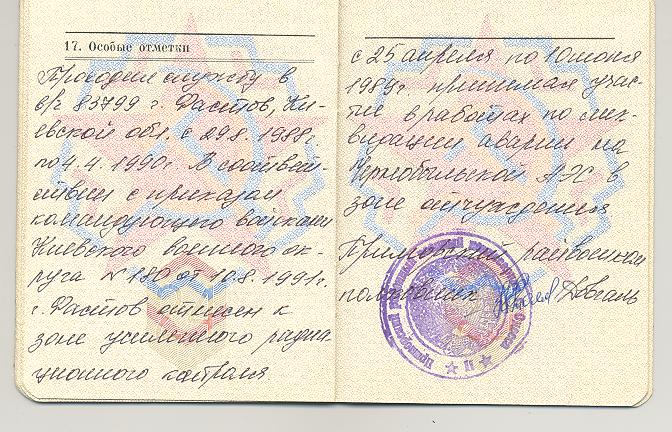 17. Особые отметки
Проходил службу в
в/ч 83799 г. Фастов, Ки-
евской обл. с 29.8.1988г.
по 4.4.1990г. В соответ-
ствии с приказом
командующего войсками
Киевского военного ок-
руга № 180 от 10.8.1991г.
г. Фастов отнесен к
зоне усиленного радиа-
ционного контроля.
с 25 апреля по 10 июня
1989г. принимал учас-
тие в работах по лик-
видации аварии на
Чернобыльской АЭС в
зоне отчуждения
Приморский райвоенком
полковник